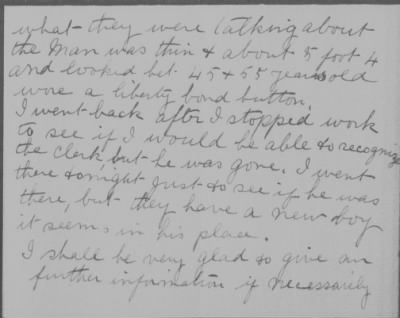 what they were talking about
the man was thin & about 5 foot 4
and looked bet 45 & 55 years old
wore a liberty bond button.
I went back after I stopped work
to see if I would be able to recognize
the clerk but he was gone. I went
there tonight just to see if he was
there, but they have a new boy
it seems in his place.
I shall be very glad to give an
further information if necessarily